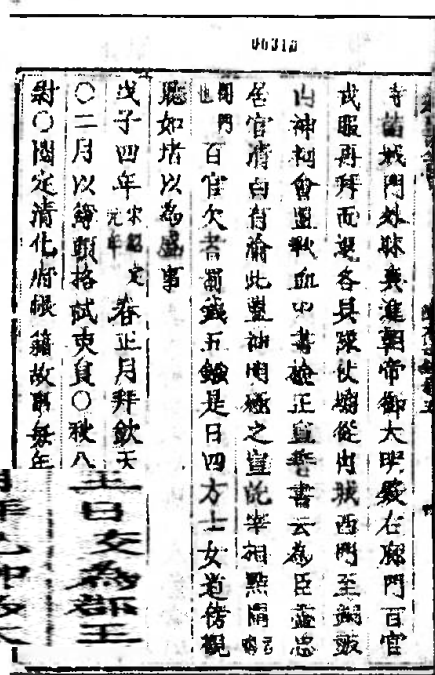 城門外昧爽進朝帝御大明殿右廊門百官
戎服再拜而退各具隊仗騶從出城西門至銅鼓
山神祠會盟歃血中書檢正宣誓書云為臣盡忠
居官清白有渝此盟神明殛之宣訖宰相點
門也百官欠者罰錢五鏹是日四方士女道傍觀
聽如堵以為盛事
戊子四年宋紹定元年春正月拜欽天
〇二月以簿頭格試吏員〇秋八
尉〇閱定清化府帳籍故事每年